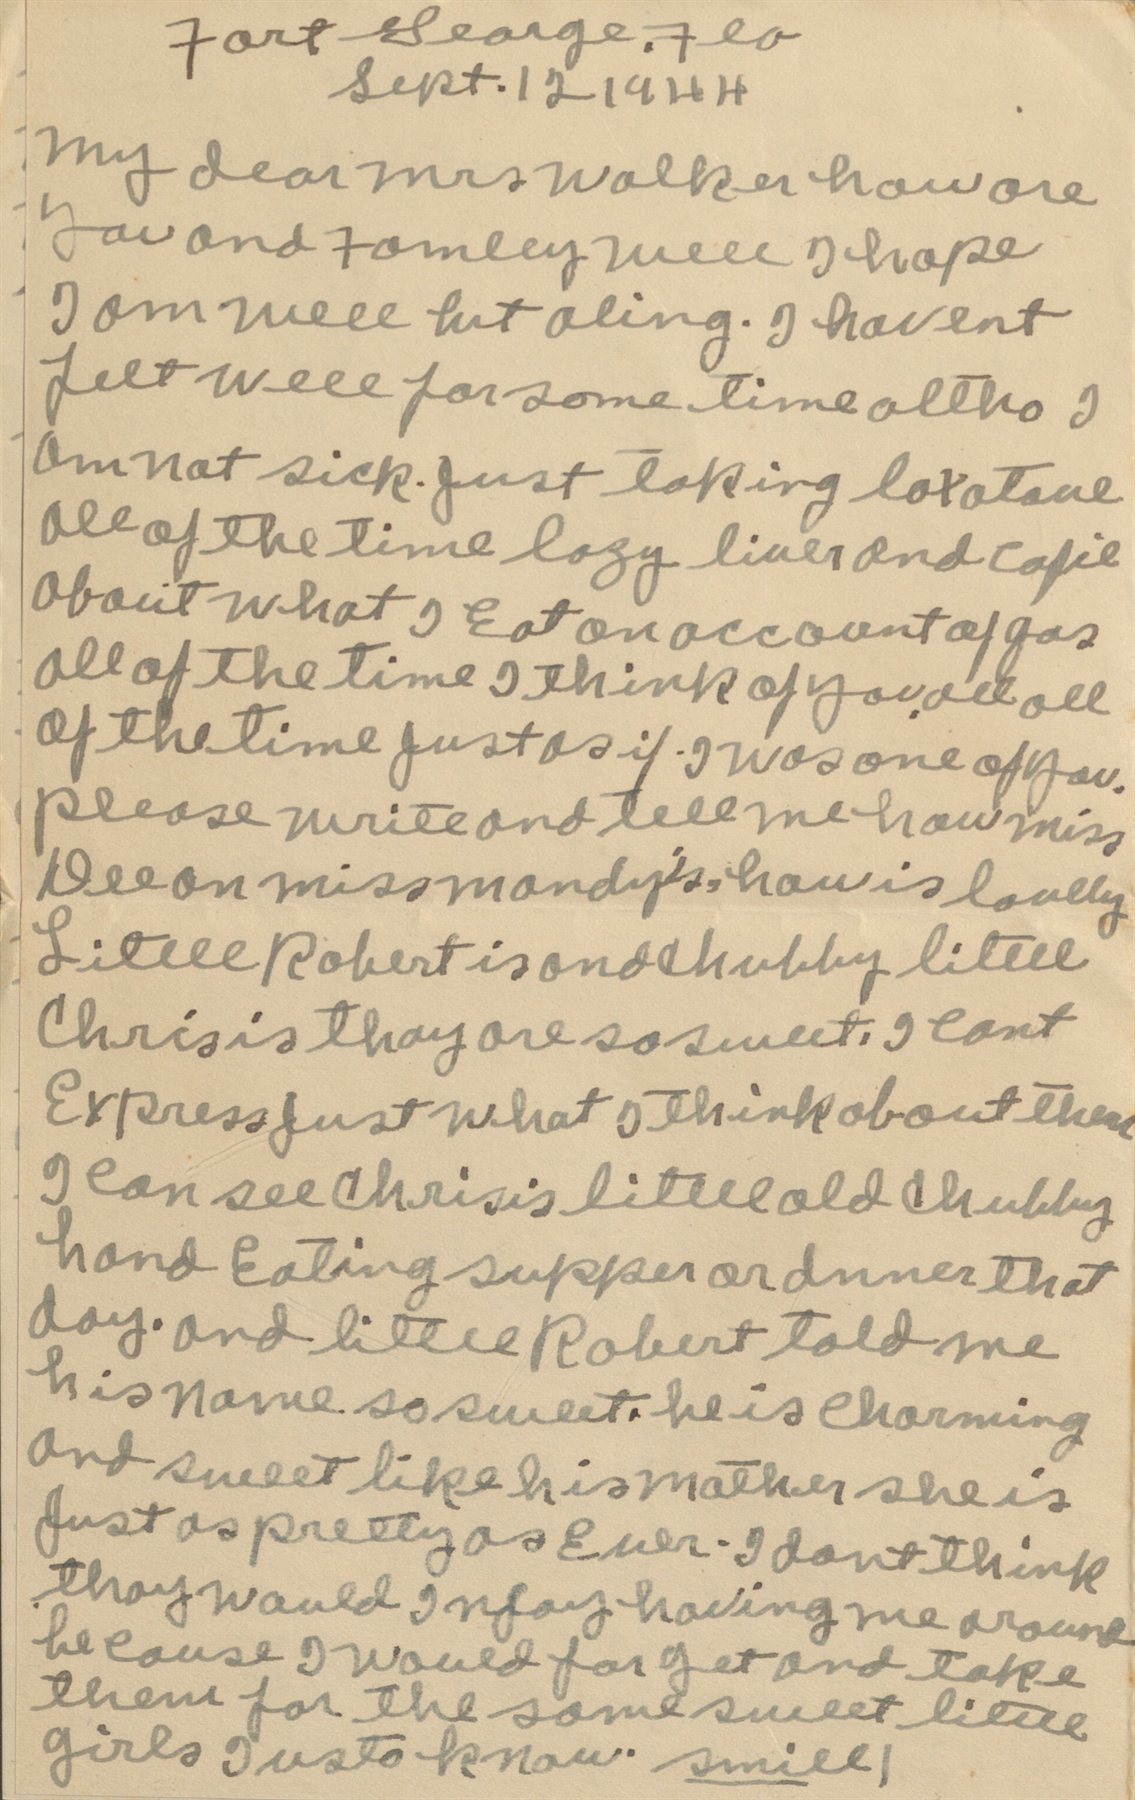 Fort George, Flo
Sept. 12 1944
My dear Mrs Walker how are
you and Famley well I hope
I am well but aling. I havent
felt well for some time altho I
am not sick. Just taking laxatave
all of the time lazy liver and
about what I Eat on account of gas
all of the time I think of you all all
of the time Just as if I was one of you.
please write and tell me how miss
Dee on miss mandy is, how is lovelly
Littel Robert is and Chubby littel
Chris is thay are so sweet. I cant
Express Just what I think about them
I can see Chrisis littel old Chubby
hand Eating supper or dnner that
day. and littel Robert told me
his name so sweet. he is Charming
and sweet like his mother she is
Just as pretty as Ever. I dont think
thay would Injoy having me around
because I would for get and take
them for the same sweet littel
girls I usto know. smill!